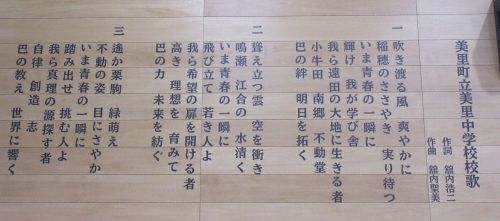 美里町立美里中学校校歌
作詞 舘内浩二
作曲 舘内聖美
一
吹き渡る風 爽やかに
稲穂のささやき 実り待つ
いま青春の一瞬に
輝け 我が学び舎
我ら遠田の大地に生きる者
小牛田 南郷 不動堂
巴の絆 明日を拓く
二
聳え立つ雲 空を衝き
鳴瀬 江合の 水清く
いま青春の一瞬に
飛び立て 若き人よ
我ら希望の扉を開ける者
高き 理想を 育みて
巴の力 未来を紡ぐ
三
遙か栗駒 緑萌え
不動の姿 目にさやか
いま青春の一瞬に
踏み出せ 挑む人よ
我ら真理の源探す者
自律 創造 志
巴の教え 世界に響く